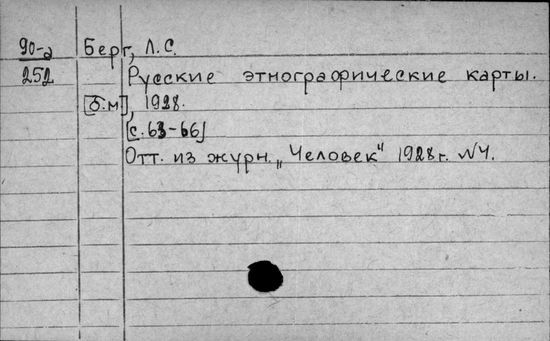 90-а Берг, Л.С.
252 Русские этнографические карты.
[б.м], 1928.
[с.63-66]
Отт. из журн. „Человек" 1928г. №4.